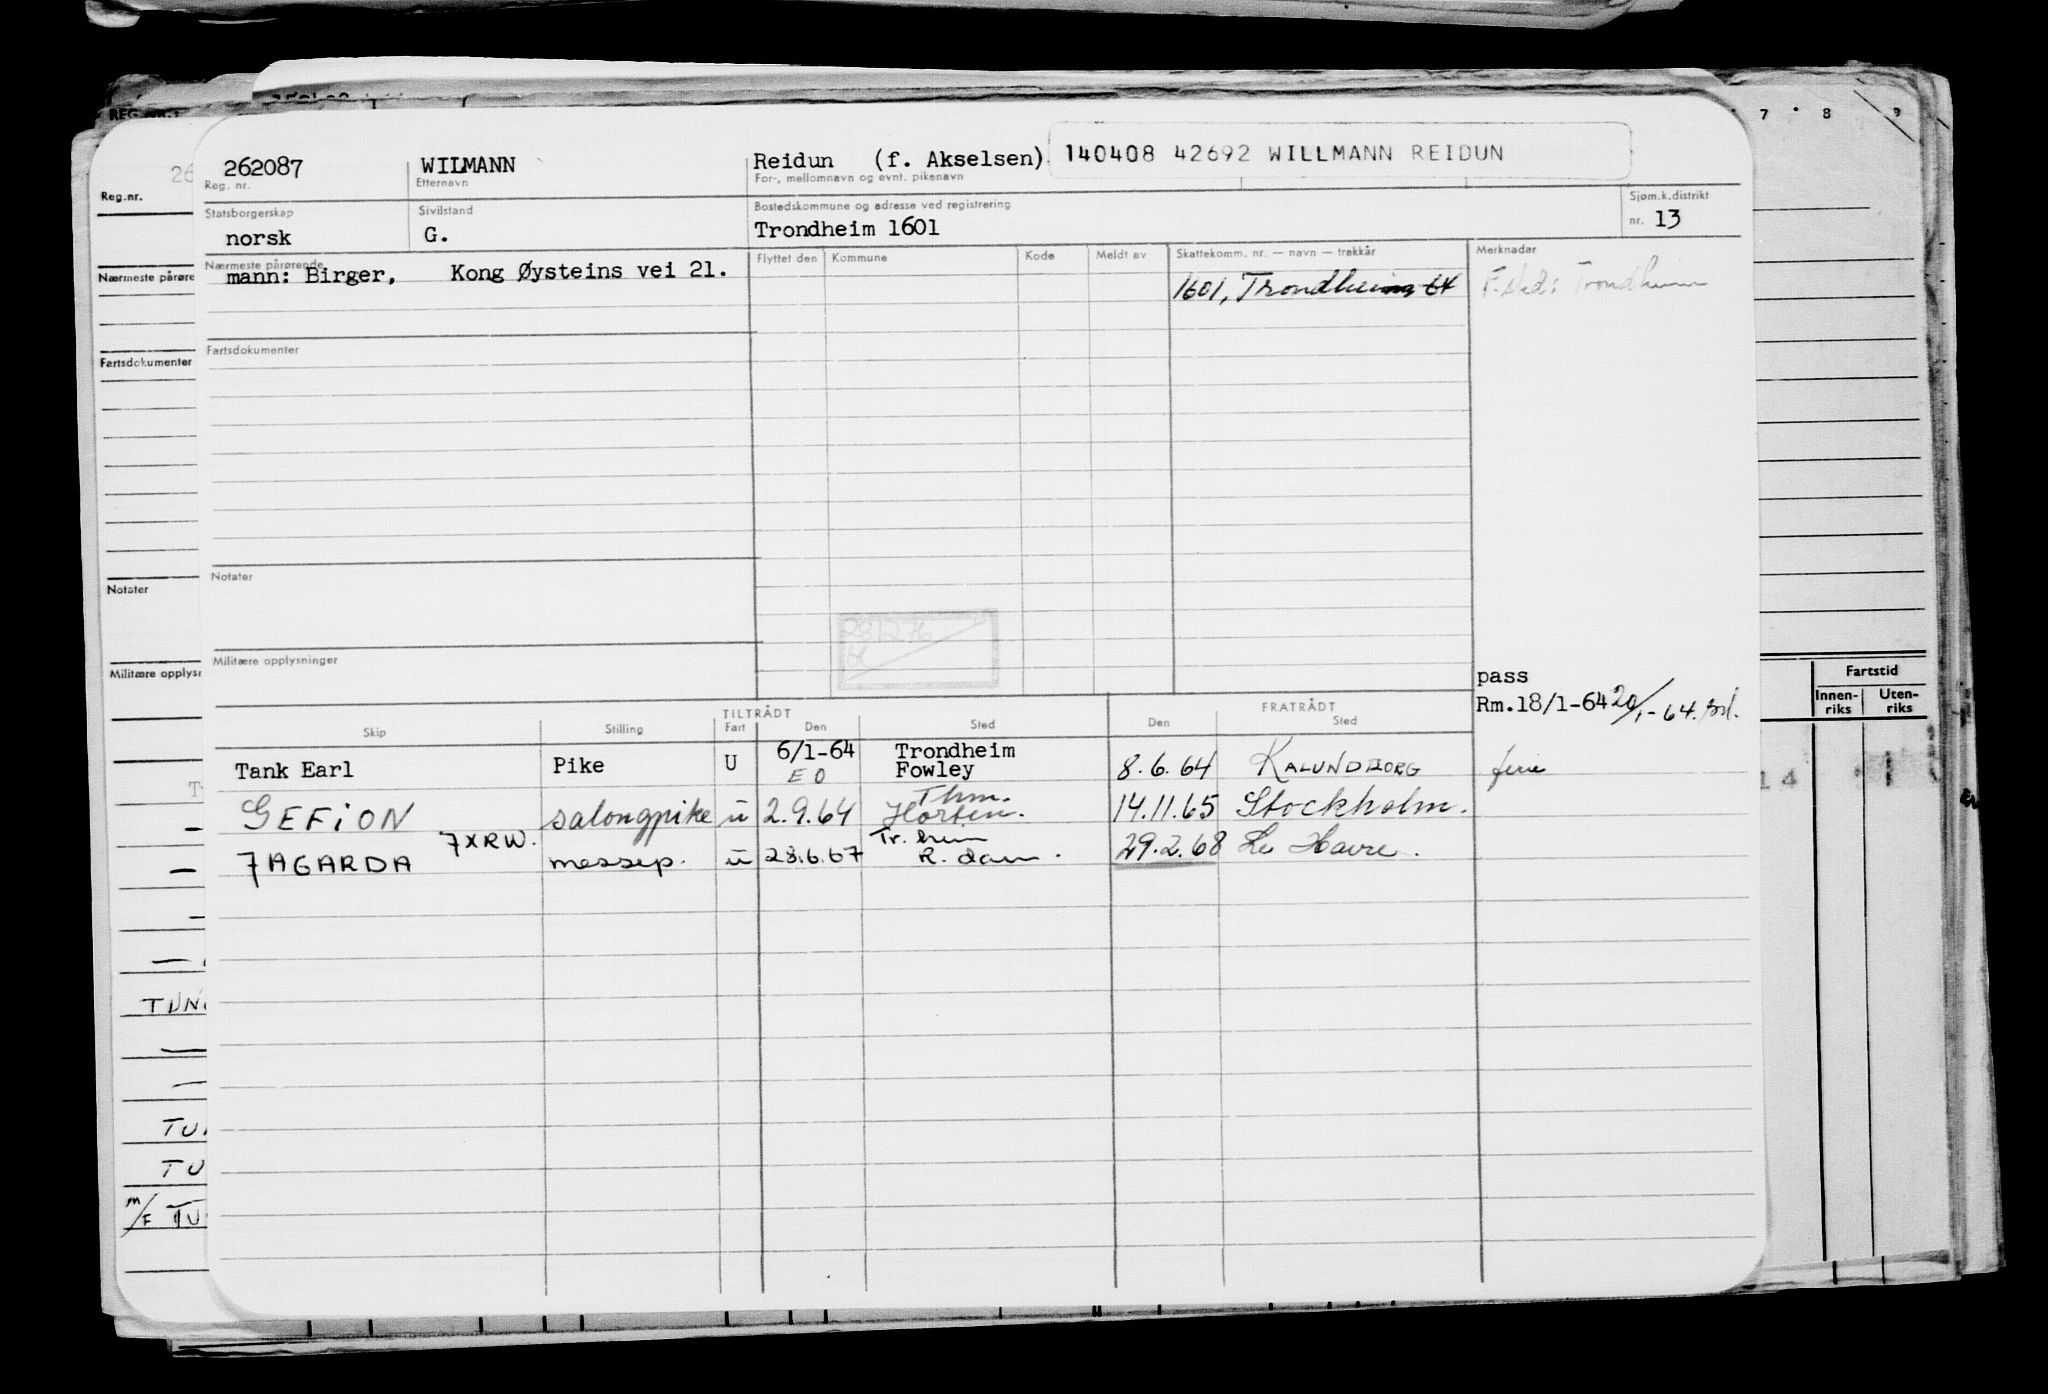 7 8 9
REG. NR.:
262087 WILMANN Reidun (f. Akselsen) 140408 42692 WILLMANN REIDUN
26 Reg. nr. Etternavn For-, mellomnavn og evnt. pikenavn
Reg.nr.
Statsborgerskap Sivilstand Bostedskommune og adresse ved registrering Sjøm.k.distrikt
norsk G. Trondheim 1601 nr. 13
Nærmeste pårørende Flyttet den Kommune Kode Meldt av Skattekomm. nr. — navn — trekkår Merknader
Nærmeste pårøre mann: Birger, Kong Øysteins vei 21. 1601, Trondheim 64 F.sted: Trondheim
Fartsdokumenter Fartsdokumenter
Notater Notater
28 12 76
Militære opplysninger
Militære opplys
pass
Rm.18/1-64 20/1-64.
Fartstid
Innenriks Utenriks
TILTRÅDT FRATRÅDT
Skip Stilling Fart Den Sted Den Sted
Tank Earl Pike U 6/1-64 Trondheim
E O Fowley 8.6.64 KALUNDBORG ferie
14
GEFION salongpike u 2.9.64 Thm. Horten. 14.11.65 Stockholm.
7AGARDA 7XRW. messep. u 28.6.67 Tr.heim R.dam. 29.2.68 Le Havre.
TUN
TU
TU
M/F TU